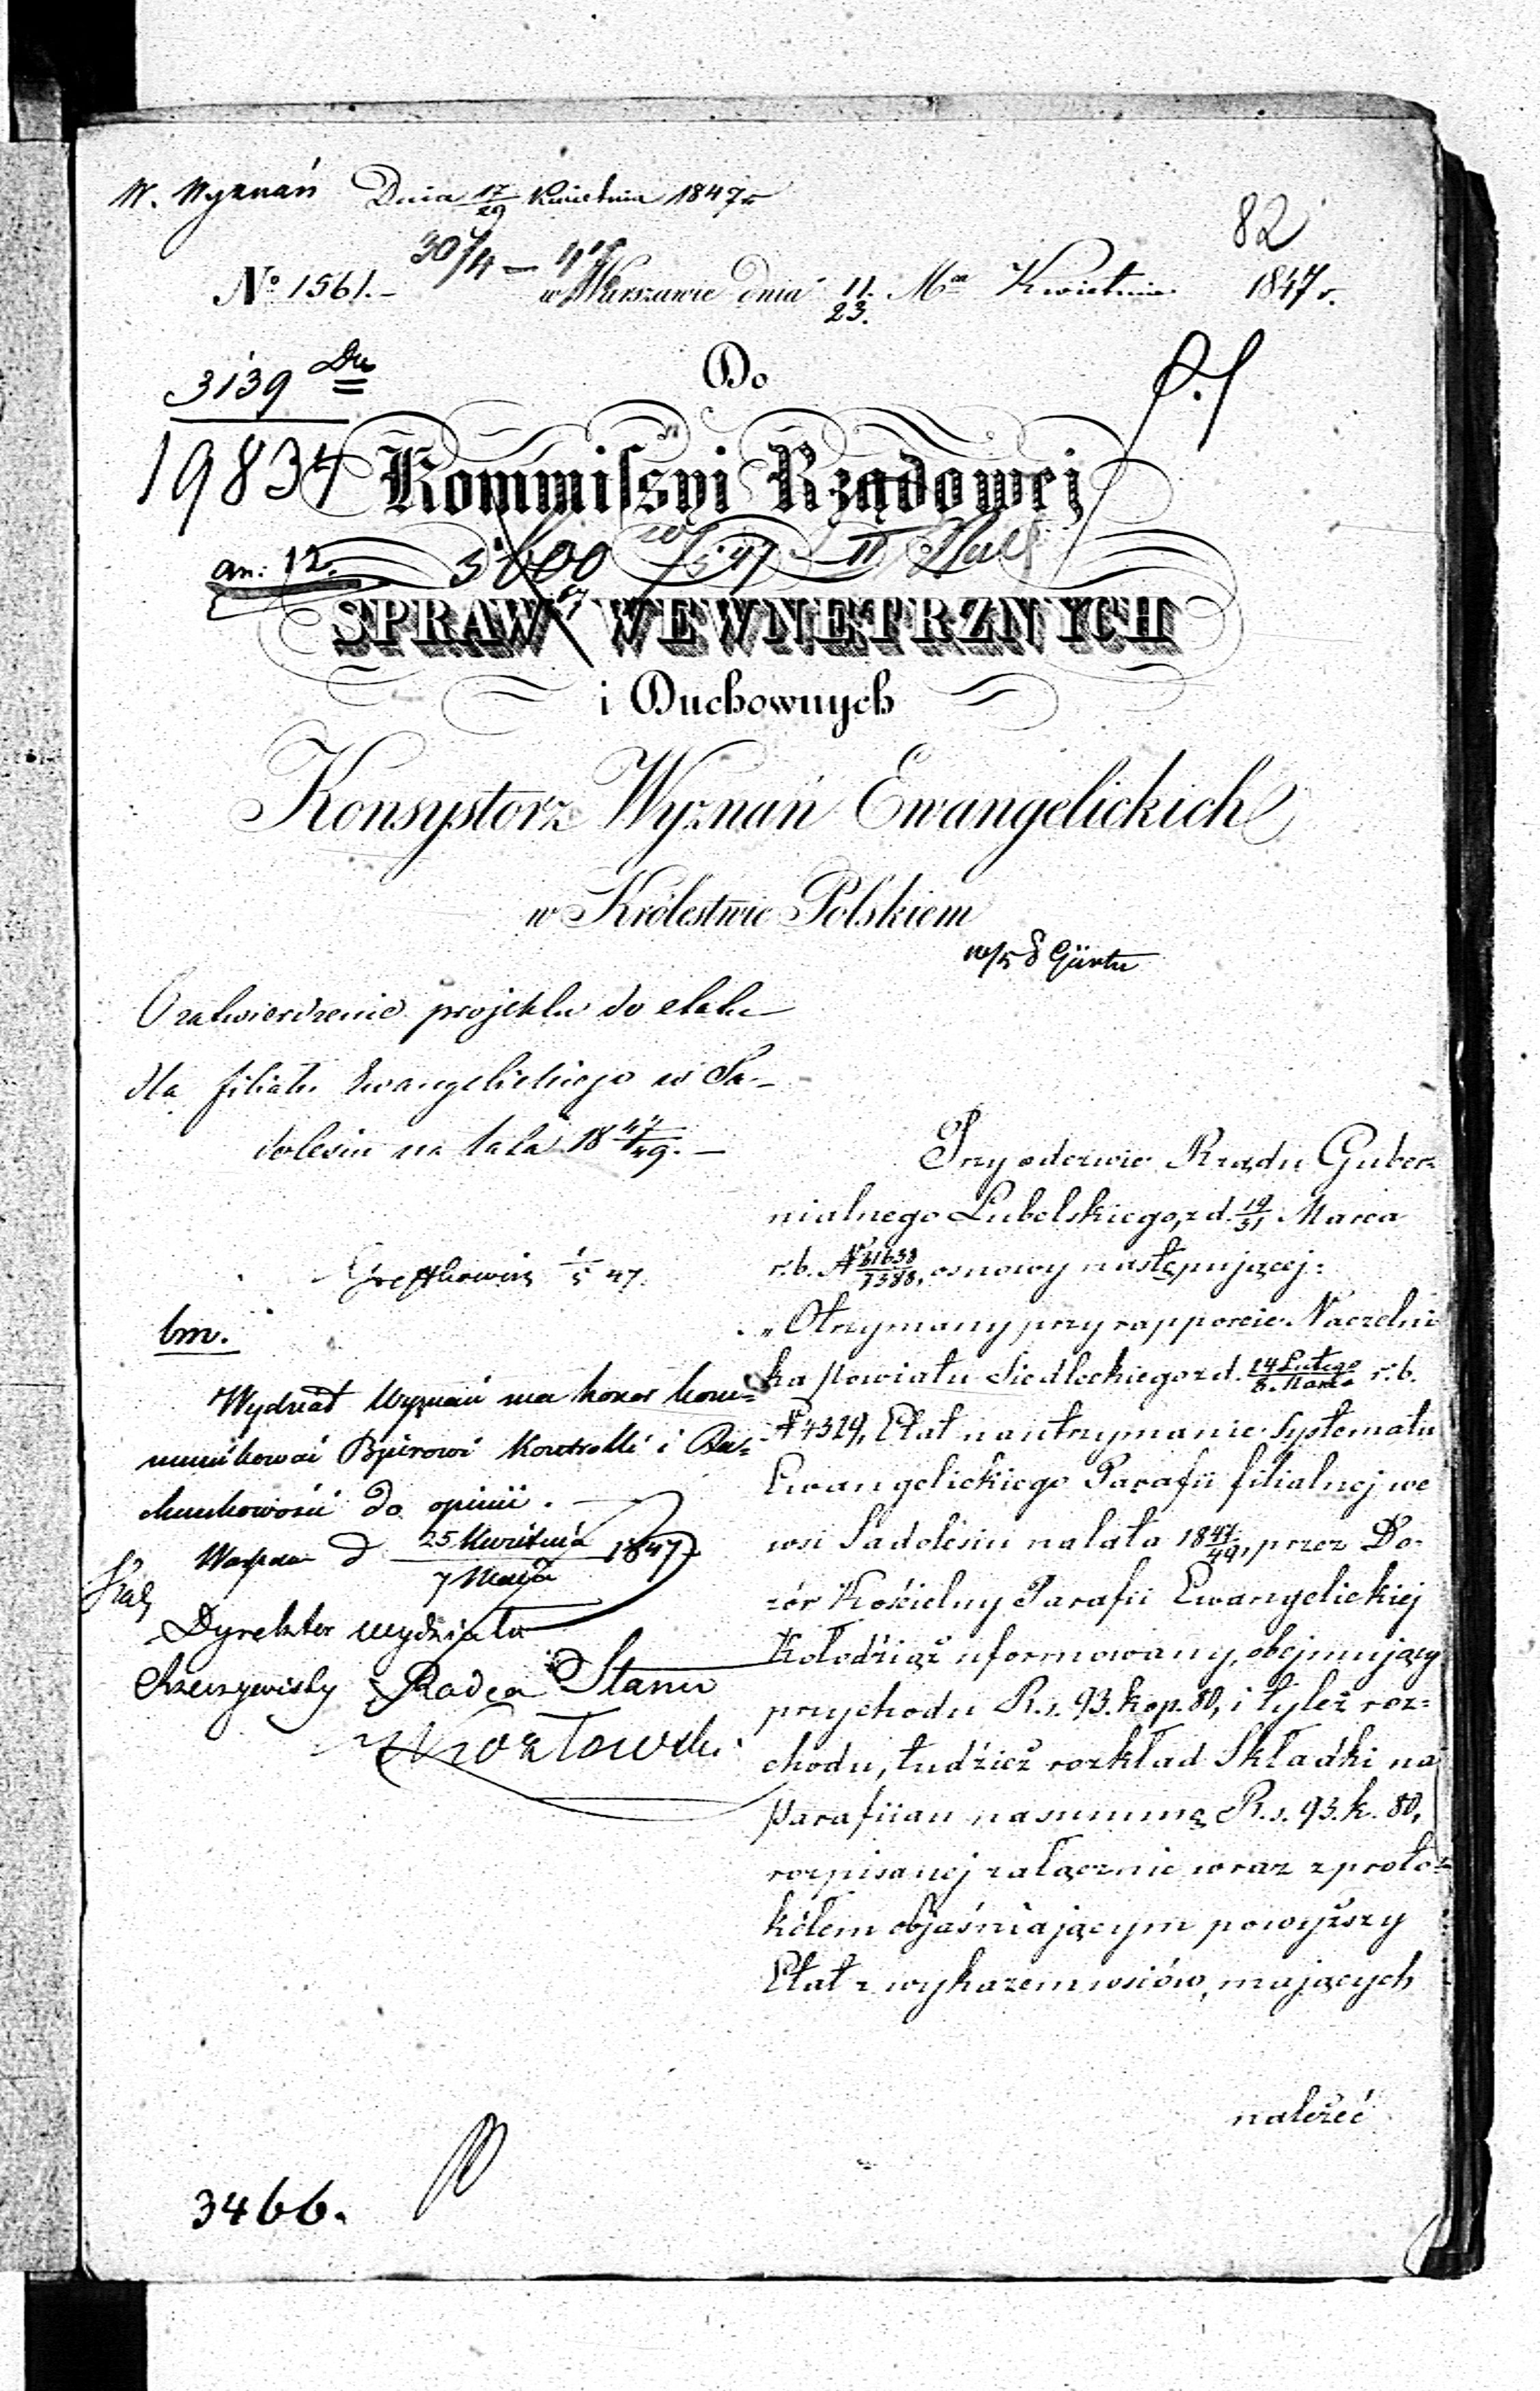 W. Wyznań Dnia 17/29 Kwietnia 1847 r.
82
30/4 – 47
№ 1561.– w Warszawie dnia 11./23. Mca Kwietnia 1847 r.
3139
Do
19834
Kommissyi Rządowej
an: 12.
SPRAW WEWNĘTRZNYCH
i Duchownych
Konsystorz Wyznań Ewangelickich
w Królestwie Polskiem
O zatwierdzenie projektu do etatu
dla filiału Ewangelickiego w Sa-
dolesiu na lata 18 47/49. –
Przy odezwie Rządu Guber-
nialnego Lubelskiego, z d. 19/31 Marca
r. b. № 31638/7388, osnowy następującej:
„Otrzymany przy rapporcie Naczelni
ka Powiatu Siedleckiego z d. 24 Lutego/8. Marca r. b.
№ 4329, Etat na utrzymanie Systematu
Ewangelickiego Parafii filialnej we
wsi Sadolesiu na lata 18 47/49, przez Do-
zór Kościelny Parafii Ewangelickiej
Kołodziąż uformowany, obejmujący
przychodu R. s. 93. kop. 80, i tyleż roz-
chodu, tudzież rozkład Składki na
Parafiian na summę R. s. 93. k. 80,
rozpisanej załącznie wraz z proto-
kółem objaśniającym powyższy
Etat z wykazem wsiów, mających
należeć
5/47.
bm.
Wydział Wyznań ma honor kom-
munikować Bjórowi Kontrolli i Ra-
chunkowości do opinii.
Warszawa d 25 Kwietnia/7 Maja 1847
Dyrektor wydziału
Rzeczywisty Radca Stanu
3466.